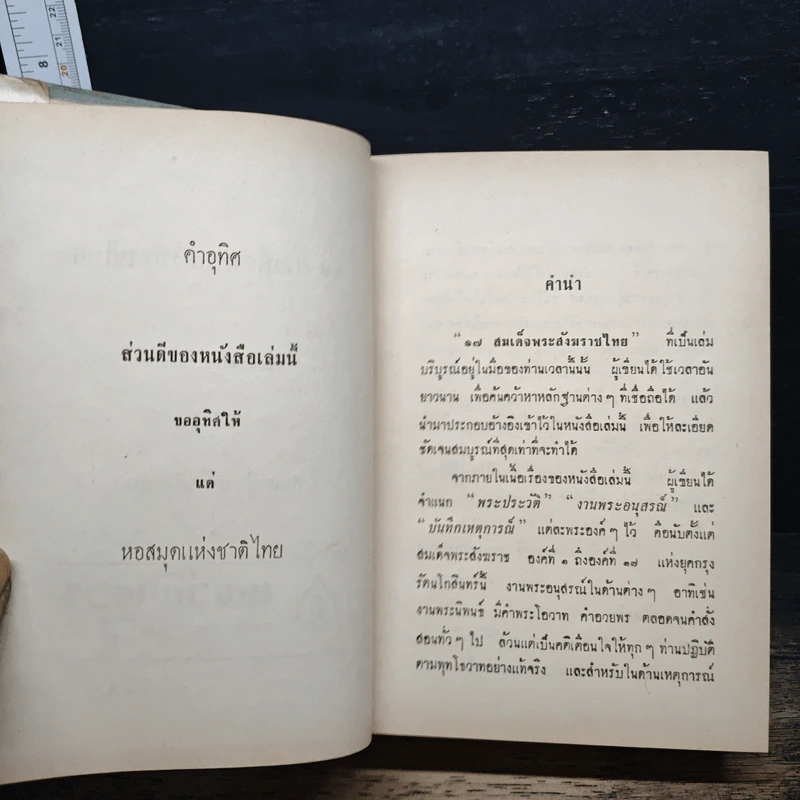 8
22
21
20
คำอุทิศ
ส่วนดีของหนังสือเล่มนี้
ขออุทิศให้
แด่
หอสมุดแห่งชาติไทย
คำนำ
“๑๗ สมเด็จพระสังฆราชไทย” ที่เป็นเล่ม
บริบูรณ์อยู่ในมือของท่านเวลานี้นั้น ผู้เขียนได้ใช้เวลาอัน
ยาวนาน เพื่อค้นคว้าหาหลักฐานต่างๆ ที่เชื่อถือได้ แล้ว
นำมาประกอบอ้างอิงเข้าไว้ในหนังสือเล่มนี้ เพื่อให้ละเอียด
ชัดเจนสมบูรณ์ที่สุดเท่าที่จะทำได้
จากภายในเนื้อเรื่องของหนังสือเล่มนี้ ผู้เขียนได้
จำแนก “พระประวัติ” “งานพระอนุสรณ์” และ
“บันทึกเหตุการณ์” แต่ละพระองค์ๆ ไว้ คือนับตั้งแต่
สมเด็จพระสังฆราช องค์ที่ ๑ ถึงองค์ที่ ๑๗ แห่งยุคกรุง
รัตนโกสินทร์นี้ งานพระอนุสรณ์ในด้านต่างๆ อาทิเช่น
งานพระนิพนธ์ มีคำพระโอวาท คำอวยพร ตลอดจนคำสั่ง
สอนทั่วๆ ไป ล้วนแต่เป็นคติเตือนใจให้ทุกๆ ท่านปฏิบัติ
ตามพุทโธวาทอย่างแท้จริง และสำหรับในด้านเหตุการณ์